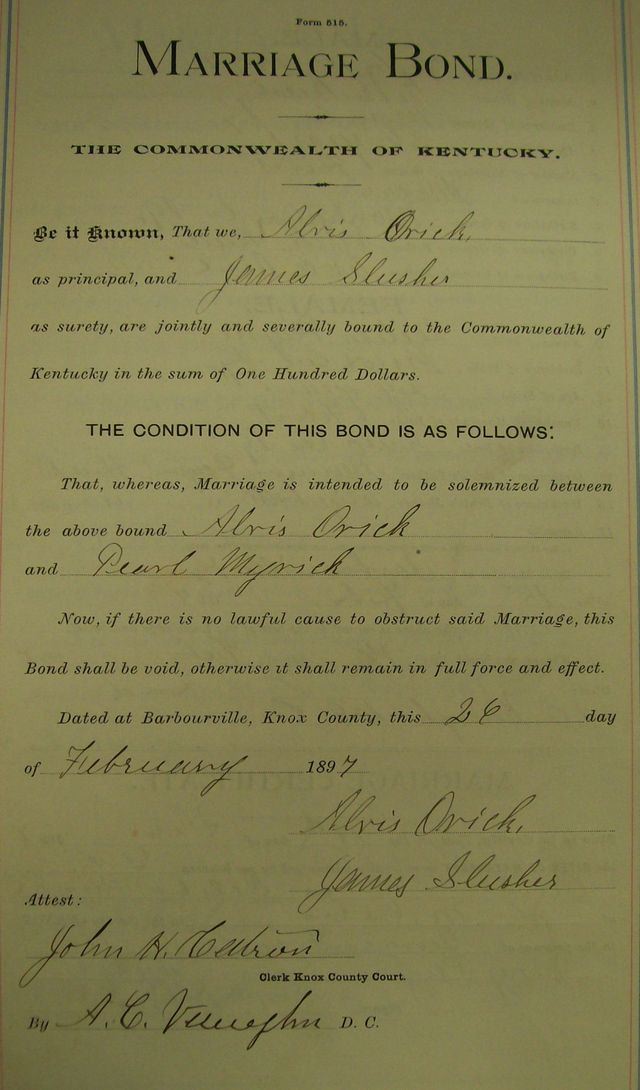 Form 515.
MARRIAGE BOND.
THE COMMONWEALTH OF KENTUCKY.
Be it Known, That we, Alvis Orick,
as principal, and James Slusher
as surety, are jointly and severally bound to the Commonwealth of
Kentucky in the sum of One Hundred Dollars.
THE CONDITION OF THIS BOND IS AS FOLLOWS:
That, whereas, Marriage is intended to be solemnized between
the above bound Alvis Orick
and Pearl Myrick
Now, if there is no lawful cause to obstruct said Marriage, this
Bond shall be void, otherwise it shall remain in full force and effect.
Dated at Barbourville, Knox County, this 26 day
of February 1897
Alvis Orick,
James Slusher
Attest:
John H.
Clerk Knox County Court.
By A. C. D. C.